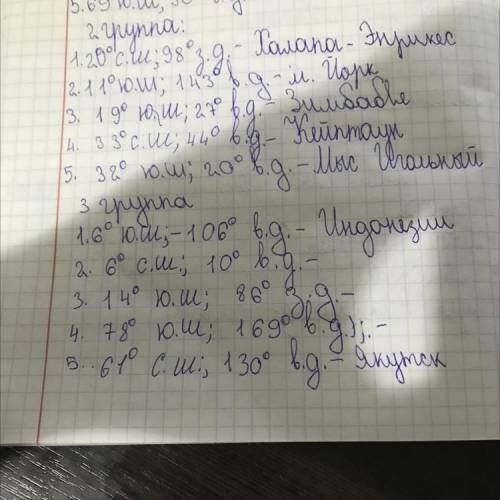 5.69 ю.ш;
2 группа:
1.20° с.ш; 98° з.д.- Халапа-Энрикес
2.11° ю.ш; 143° в.д.- м. Йорк
3. 19° ю.ш; 27° в.д.- Зимбабве
4. 33° с.ш; 44° в.д.- Кейптаун
5. 32° ю.ш; 20° в.д.-Мыс Игольный
3 группа
1.6° ю.ш;-106° в.д.- Индонезии
2. 6° с.ш; 10° в.д.-
3. 14° ю.ш; 86° з.д.-
4. 78° ю.ш; 169° в.д.);.-
5..61° с.ш; 130° в.д.- Якутск